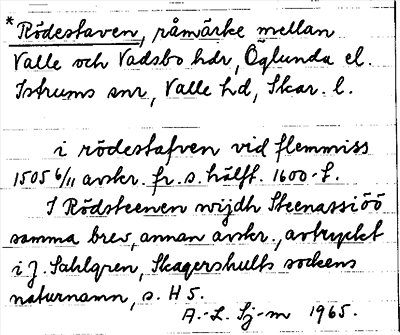 * Rödestaven, råmärke mellan
Valle och Vadsbo hdr, Öglunda el.
Istrums snr, Valle hd, Skar. l.
i rödestafven vid flemmiss
1505 6/11 avskr. fr. s. hälft. 1600-t.
I Rödsteenen wijdh Steenassiöö
samma brev, annan avskr., avtryckt
i J. Sahlgren, Skagershults sockens
naturnamn, s. H 5.
A.-L. Sj-m 1965.